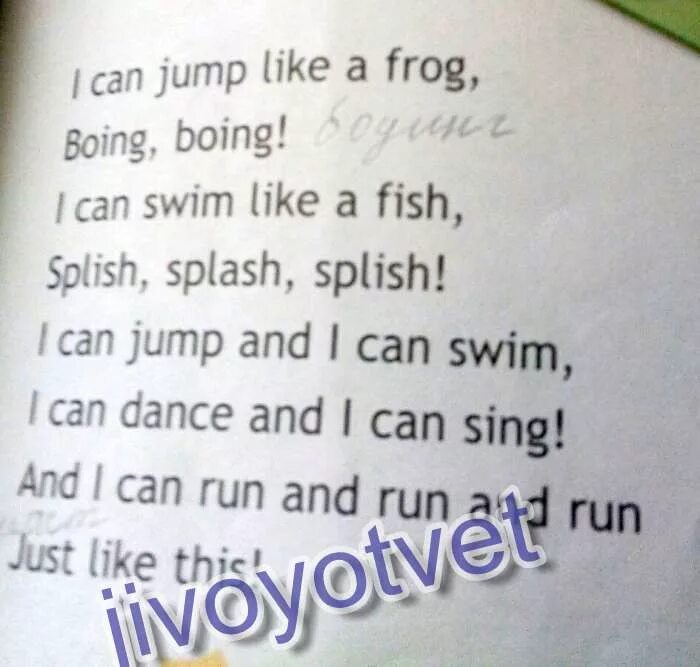 I can jump like a frog,
Boing, boing! бодинг
I can swim like a fish,
Splish, splash, splish!
I can jump and I can swim,
I can dance and I can sing!
And I can run and run and run
Just like this!
jivoyotvet